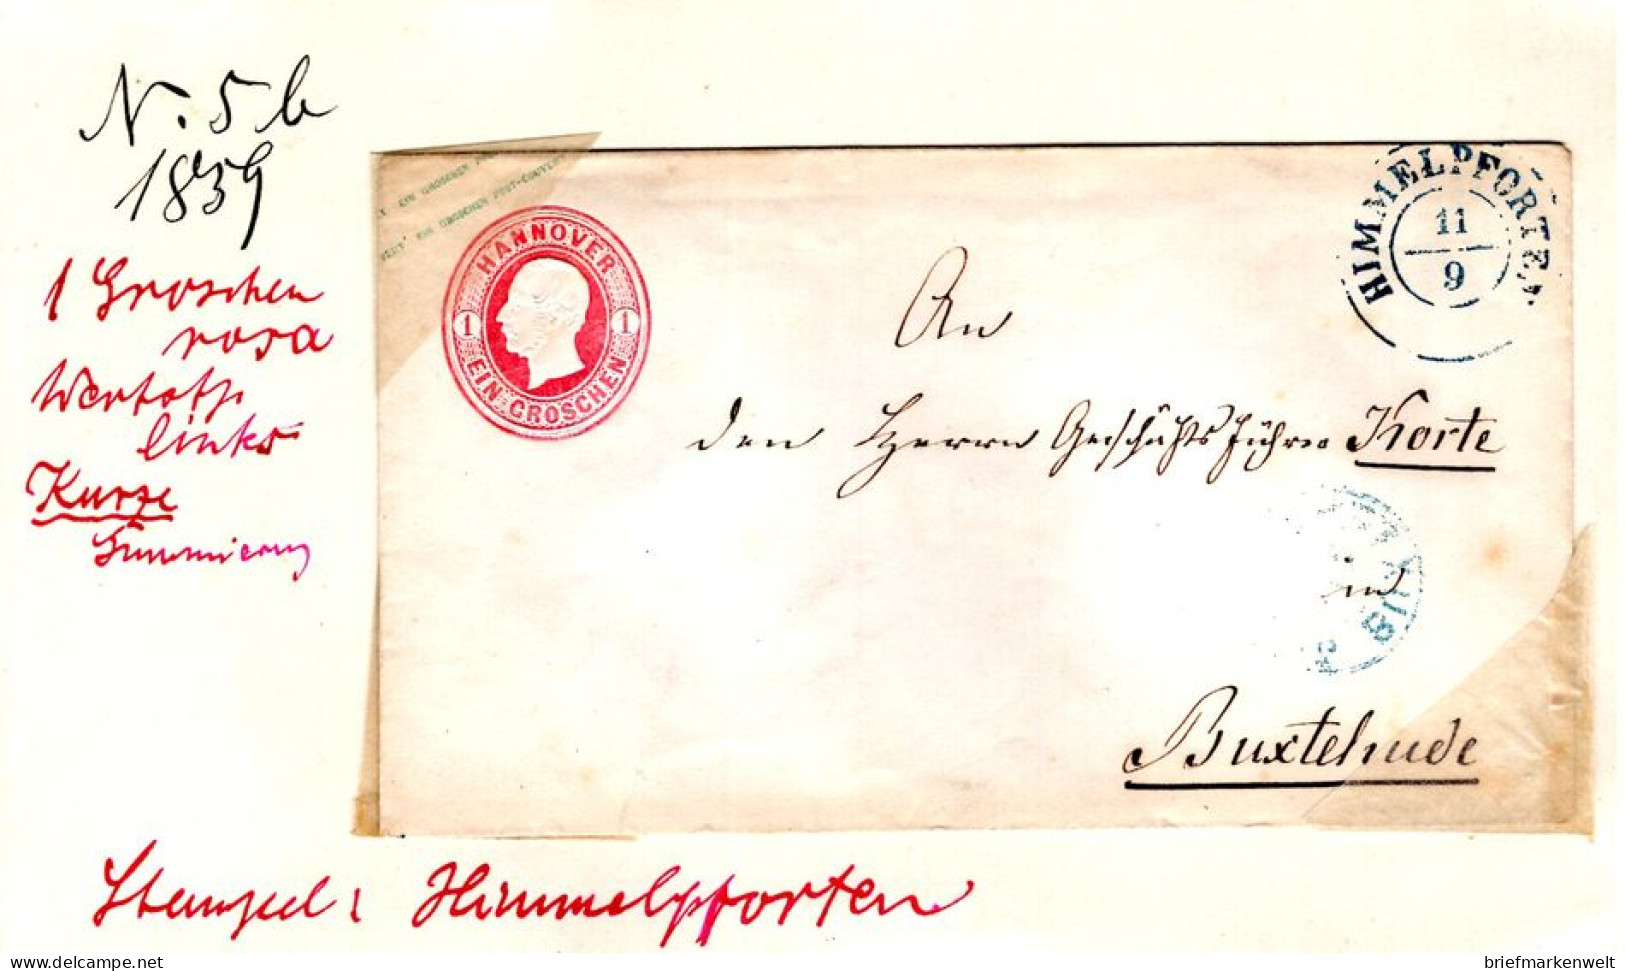 N. 5b
1859
1 Groschen
rosa
links
Kurze
Gummierung
EIN GROSCHEN POST-COUVERT
HANNOVER
1 1
EIN GROSCHEN
HIMMELPFORTEN
11
9
An
den Herrn Geschäftsführer Korte
in
Buxtehude
Stempel: Himmelpforten
delcampe.net
briefmarkenwelt